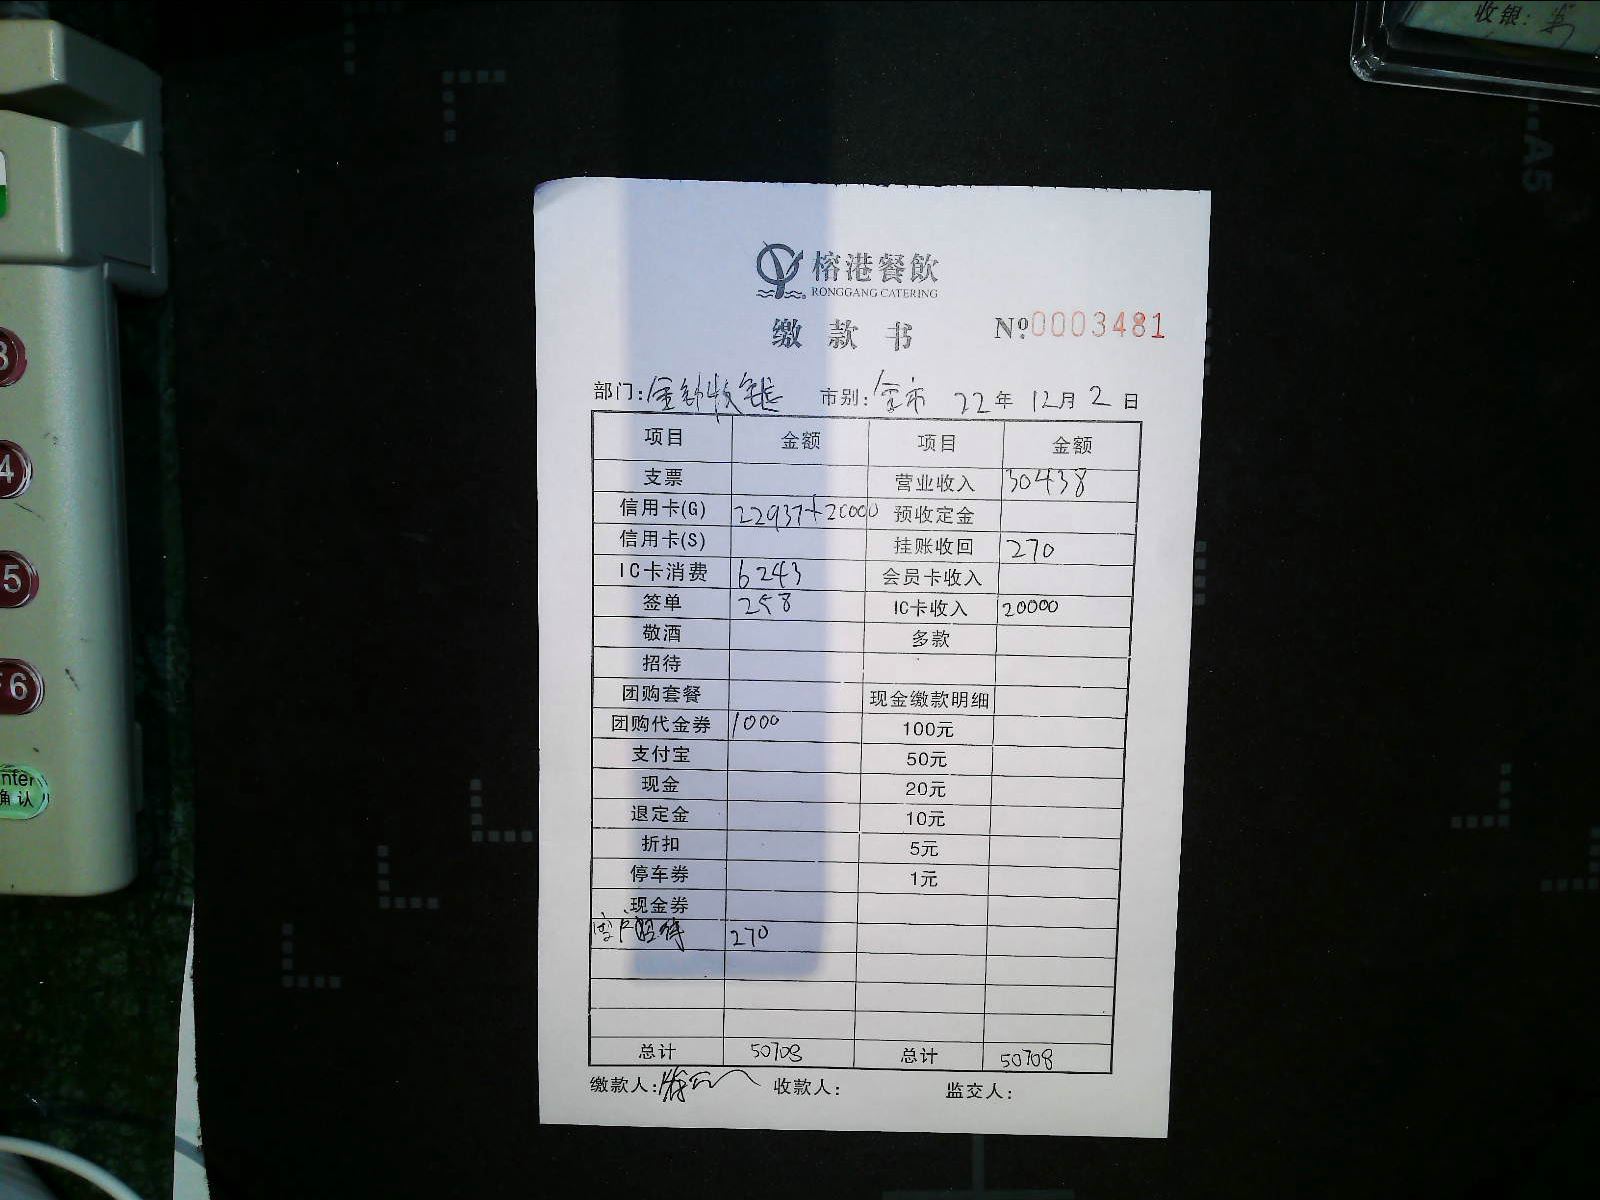 收银:
A5
3
4
5
6
nter
确认
榕港餐飲
RONGGANG CATERING
缴款书 Nº.0003481
部门:金钻收银 市别:全市 22年12月2日
项目 金额 项目 金额
支票 营业收入 30438
信用卡(G) 22937+20000 预收定金
信用卡(S) 挂账收回 270
IC卡消费 6243 会员卡收入
签单 258 IC卡收入 20000
敬酒 多款
招待
团购套餐 现金缴款明细
团购代金券 1000 100元
支付宝 50元
现金 20元
退定金 10元
折扣 5元
停车券 1元
现金券
招待 270
总计 50708 总计 50708
缴款人: 收款人: 监交人: